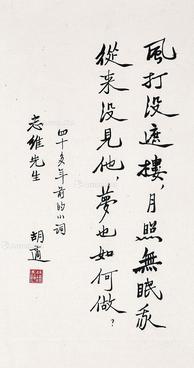 風打没遮樓，月照無眠我
從来没見他，夢也如何做？
四十多年前的小詞
志維先生
胡適